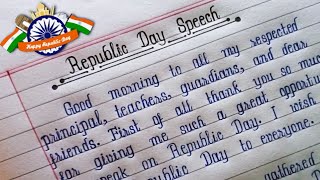 Happy Republic Day
Republic Day Speech
Good morning to all my respected
principal, teachers, guardians, and dear
friends. First of all thank you so much
for giving me such a great opportunity
speak on Republic Day. I wish
Republic Day to everyone.
gathered